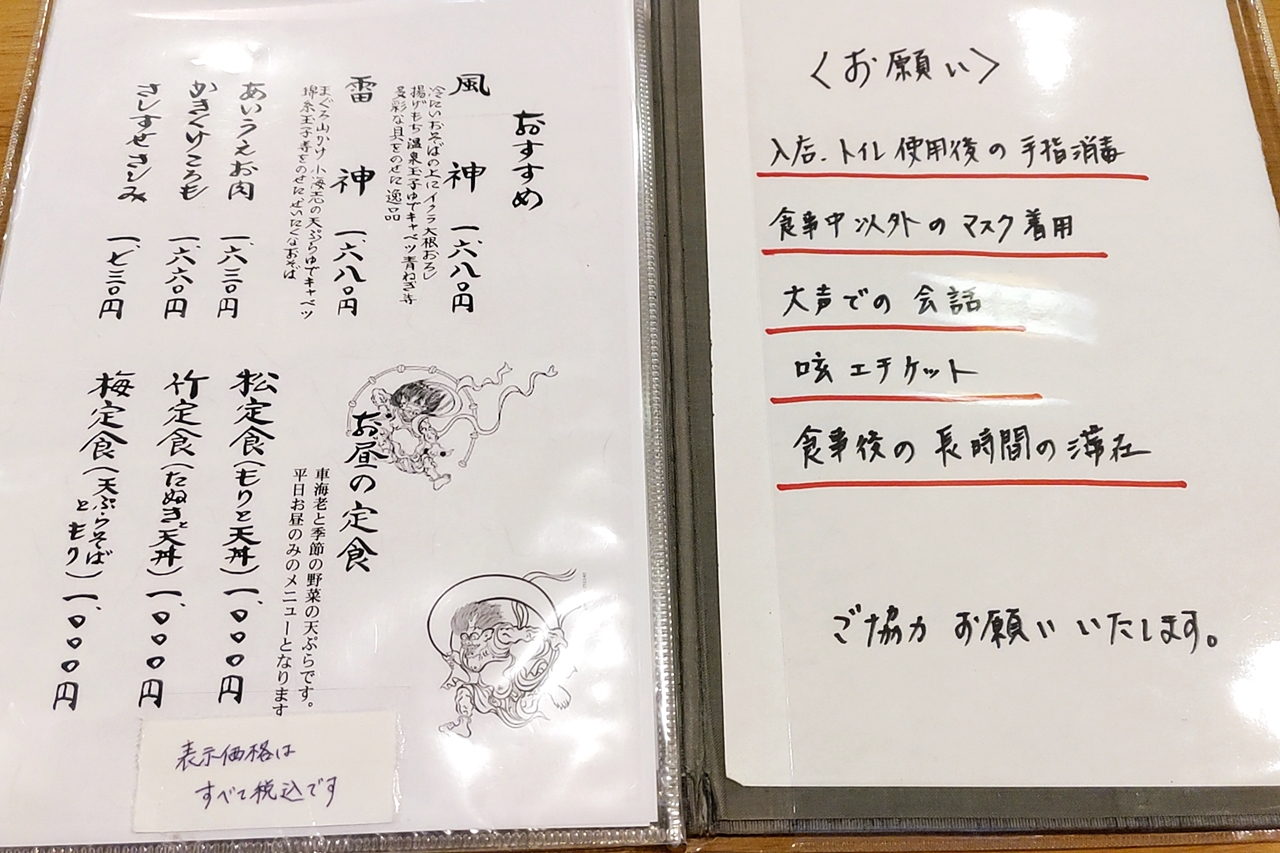 おすすめ
風神 一、六八〇円
冷たいおそばの上にイクラ大根おろし
揚げもち温泉玉子ゆでキャベツ青ねぎ等
多彩な具をのせた逸品
雷神 一、六八〇円
まぐろ山かけ小海老の天ぷらゆでキャベツ
錦糸玉子等をのせたぜいたくなおそば
あいうえお肉 一、六三〇円
かきくけころも 一、六六〇円
さしすせさしみ 一、七三〇円
お昼の定食
車海老と季節の野菜の天ぷらです。
平日お昼のみのメニューとなります
松定食(もりと天丼) 一、〇〇〇円
竹定食(たぬきと天丼) 一、〇〇〇円
梅定食(天ぷらそばともり) 一、〇〇〇円
表示価格は
すべて税込です
〈お願い〉
入店、トイレ使用後の手指消毒
食事中以外のマスク着用
大声での会話
咳エチケット
食事後の長時間の滞在
ご協力お願いいたします。